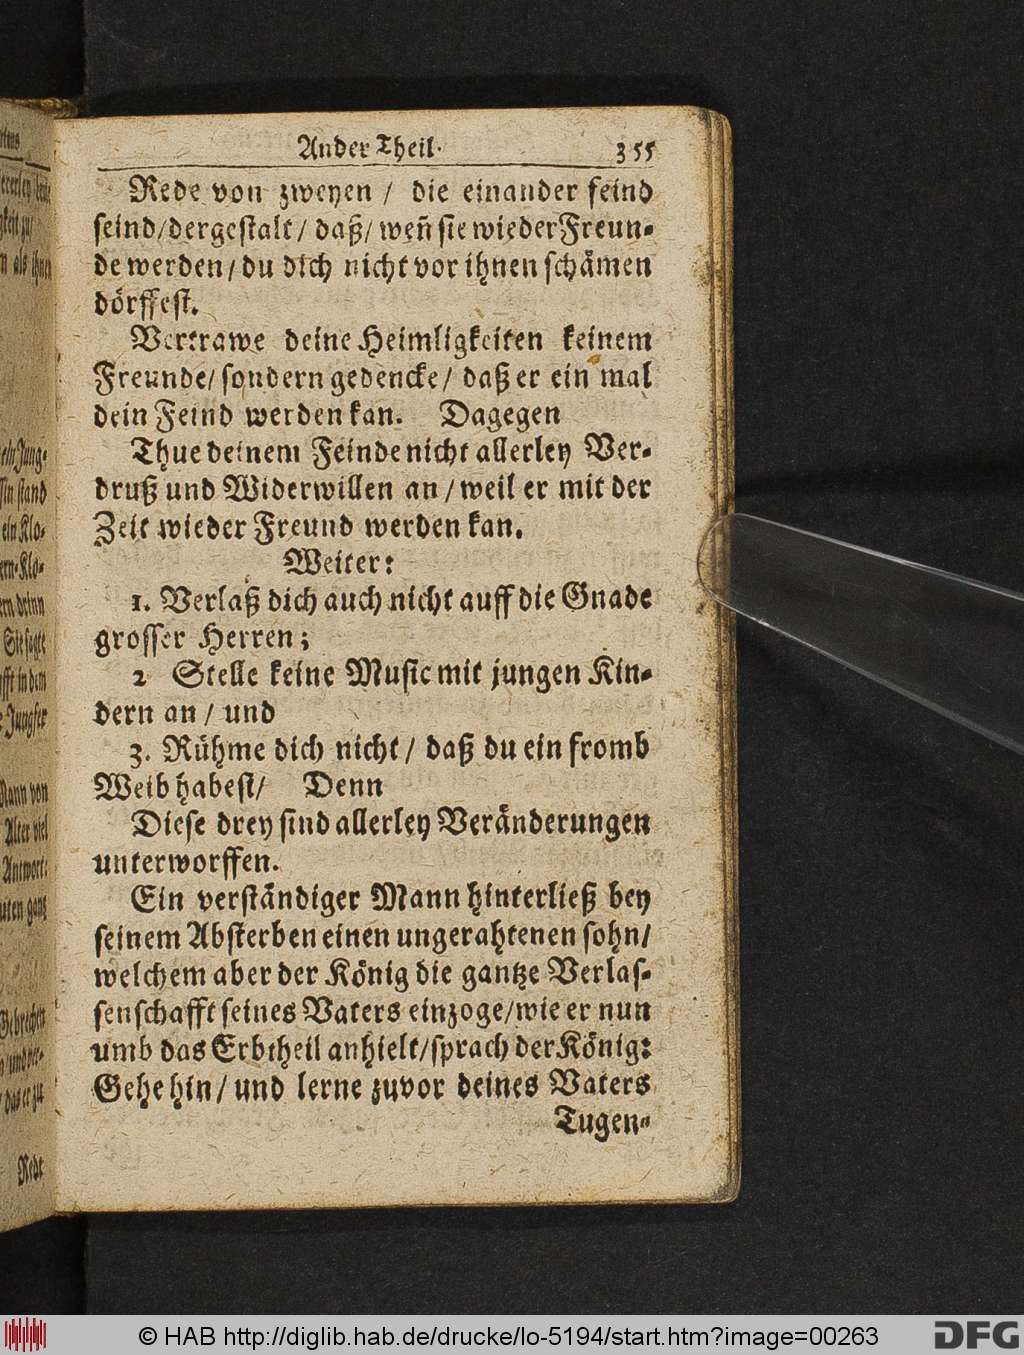 Ander Theil. 355
Rede von zweyen / die einander feind
seind/dergestalt / daß/ weñ sie wieder Freun-
de werden / du dich nicht vor ihnen schämen
dörffest.
Vertrawe deine Heimligkeiten keinem
Freunde/ sondern gedencke / daß er ein mal
dein Feind werden kan. Dagegen
Thue deinem Feinde nicht allerley Ver-
druß und Widerwillen an / weil er mit der
Zeit wieder Freund werden kan.
Weiter:
1. Verlaß dich auch nicht auff die Gnade
grosser Herren;
2 Stelle keine Music mit jungen Kin-
dern an / und
3. Rühme dich nicht / daß du ein fromb
Weib habest/ Denn
Diese drey sind allerley Veränderungen
unterworffen.
Ein verständiger Mann hinterließ bey
seinem Absterben einen ungerahtenen sohn/
welchem aber der König die gantze Verlas-
senschafft seines Vaters einzoge/wie er nun
umb das Erbtheil anhielt/sprach der König:
Gehe hin / und lerne zuvor deines Vaters
Tugen-
ein Jung-
stand
ein Klo-
Klo-
Sie sagte
Jungfer
Mann von
Alter viel
Antwort:
Gebrechen
Rede
© HAB http://diglib.hab.de/drucke/lo-5194/start.htm?image=00263
DFG